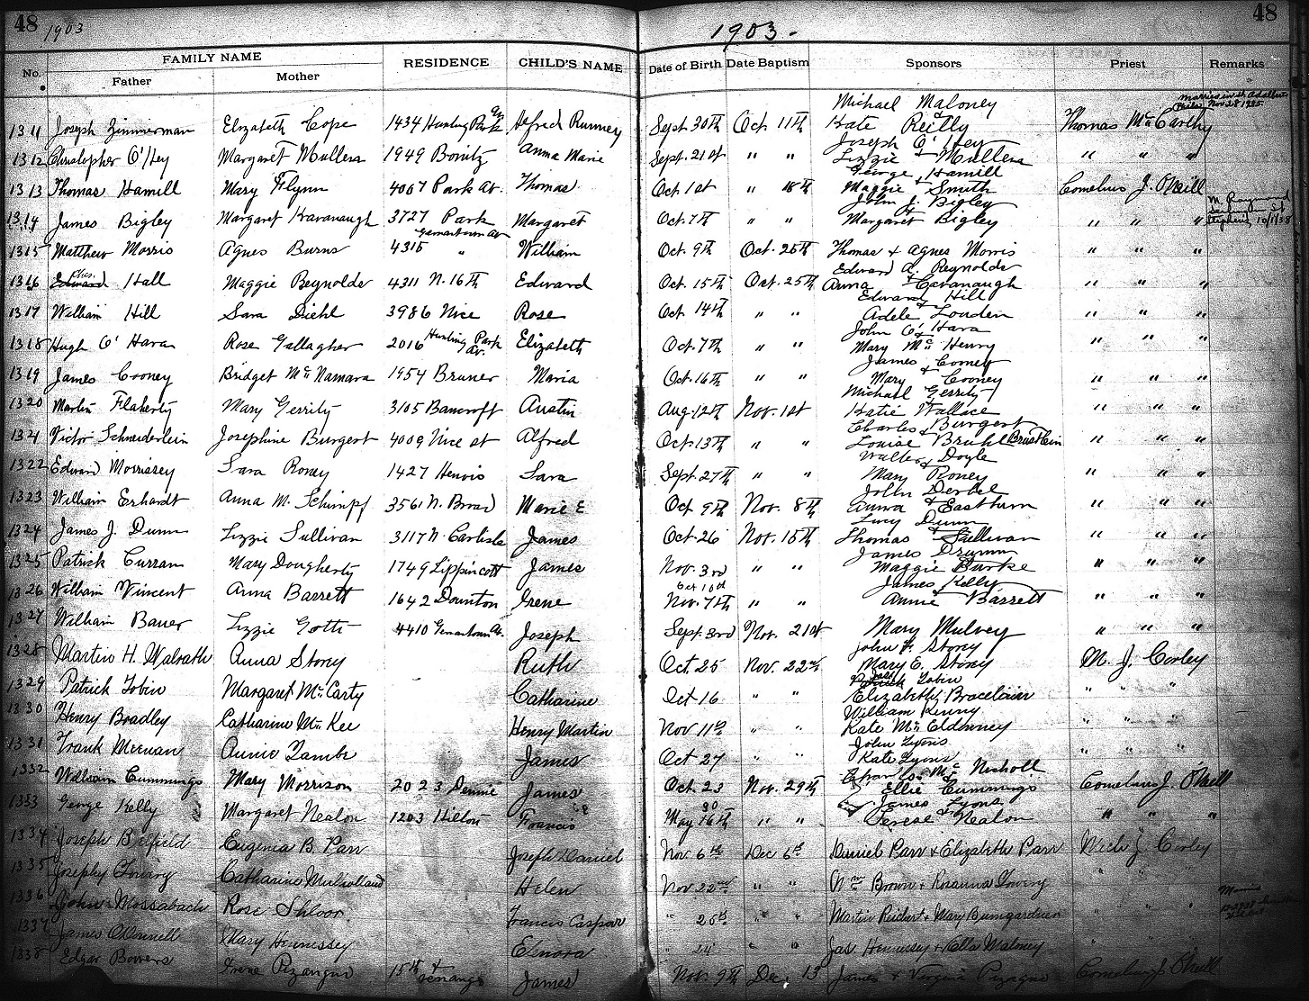 48 1903
1903.- 48
No. FAMILY NAME RESIDENCE CHILD'S NAME Date of Birth Date Baptism Sponsors Priest Remarks
Father Mother
Michael Maloney
1311 Joseph Zimmerman Elizabeth Cope 1434 Hunting Park Av. Alfred Rumney Sept. 30th Oct 11th Kate Reilly Thomas McCarthy
Joseph O'Hey
1312 Christopher O'Hey Margaret Mullera 1949 Bonitz Anna Marie Sept. 21st " " Lizzie Mullera " " "
George Hamill
1313 Thomas Hamill Mary Flynn 4007 Park Av. Thomas Oct 1st " 18th Maggie Smith Cornelius J. O'Neill
John J. Bigley
1314 James Bigley Margaret Kavanaugh 3727 Park Margaret Oct. 7th " " Margaret Bigley " " "
Germantown Av
1315 Matthew Morris Agnes Burns 4315 " William Oct. 9th Oct. 25th Thomas + Agnes Morris " " "
Edward A. Reynolds
1316 Edward Chas. Hall Maggie Reynolds 4311 N. 16th Edward Oct. 15th Oct. 25th Anna Cavanaugh " " "
Edward Hill
1317 William Hill Sara Diehl 3986 Nice Rose Oct 14th " " Adele Louden " " "
John O'Hara
1318 Hugh O'Hara Rose Gallagher 2016 Hunting Park Av. Elizabeth Oct. 7th " " Mary McHenry " " "
James Cooney
1319 James Cooney Bridget McNamara 1954 Bruner Maria Oct. 16th " " Mary Cooney " " "
Michael Gerrity
1320 Martin Flaherty Mary Gerrity 3105 Bancroft Austin Aug. 12th Nov. 1st Katie Wallace " " "
Charles Burgert
1321 Victor Schneiderlein Josephine Burgert 4009 Nice st Alfred Oct. 13th " " Louise Bruhl " " "
Walter Doyle
1322 Edward Morrissey Sara Roney 1427 Sara Sept. 27th " " Mary Roney " " "
John
1323 William Erhardt Anna M. Schimpf 3561 N. Broad Marie E Oct 9th Nov. 8th Anna Eastburn " " "
Lucy Dunn
1324 James J. Dunn Lizzie Sullivan 3117 N. Carlisle James Oct 26 Nov. 15th Thomas Sullivan " " "
James Drumm
1325 Patrick Curran Mary Dougherty 1749 Lippincott James Nov. 3rd " " Maggie Burke " " "
Oct 10th James Kelly
1326 William Vincent Anna Barrett 1642 Dounton Irene Nov. 7th " " Annie Barrett " " "
1327 William Bauer Lizzie Gotti 4410 Germantown Av. Joseph Sept. 3rd Nov. 21st Mary Mulvey " " "
John F. Stony
1328 Martin H. Walrath Anna Stony Ruth Oct. 25 Nov. 22nd Mary E. Stony M. J. Corley
Tobin
1329 Patrick Tobin Margaret McCarty Catharine Oct 16 " " Elizabeth Bracelain " " "
William Kenny
1330 Henry Bradley Catharine McKee Henry Martin Nov 11th " " Kate McEldowney " " "
John Lyons
1331 Frank Mernan Annie Lambe James Oct 27 " " Kate Lyons " " "
Charles McNicholl
1332 William Cummings Mary Morrison 2023 Dennie James Oct. 23 Nov. 29th Ellie Cummings Cornelius J. O'Neill
James Lyons
1333 George Kelly Margaret Nealon 1203 Hilton Francis May 30 " " Terese Nealon " " "
1334 Joseph Bitfield Eugenia B. Parr Joseph Daniel Nov 6th Dec 6th Daniel Parr + Elizabeth Parr Mich J. Corley
1335 Joseph Lowry Catharine Mulholland Helen Nov 22nd " " Wm Brown + Rosanna Lowry " " "
1336 John Mossabach Rose Shloor Francis Caspar " 25th Martin Reichert + Mary Bumgardner " " "
1337 James O'Donnell Mary Hennessey Elenora " 24 " " Jas Hennessy + Nella Maloney " " "
1338 Edgar Bowers Irene Pizangno 15th + Venango James Nov. 9th Dec. 13 James + Virginia Cornelius J. O'Neill